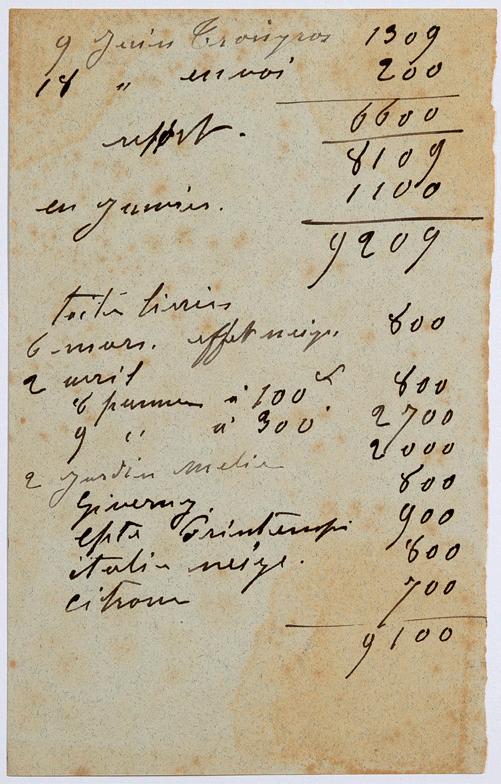 9 Juin Troisgros 1309
18 " envoi 200
6600
report. 8109
en Janvier. 1100
9209
toiles livrées
6 mars. effet neige. 800
2 avril
8 à 100 800
9 " à 300 2700
2 Jardin 2000
Giverny 800
Epte Printemps 900
italie neige. 600
citrons 700
9100